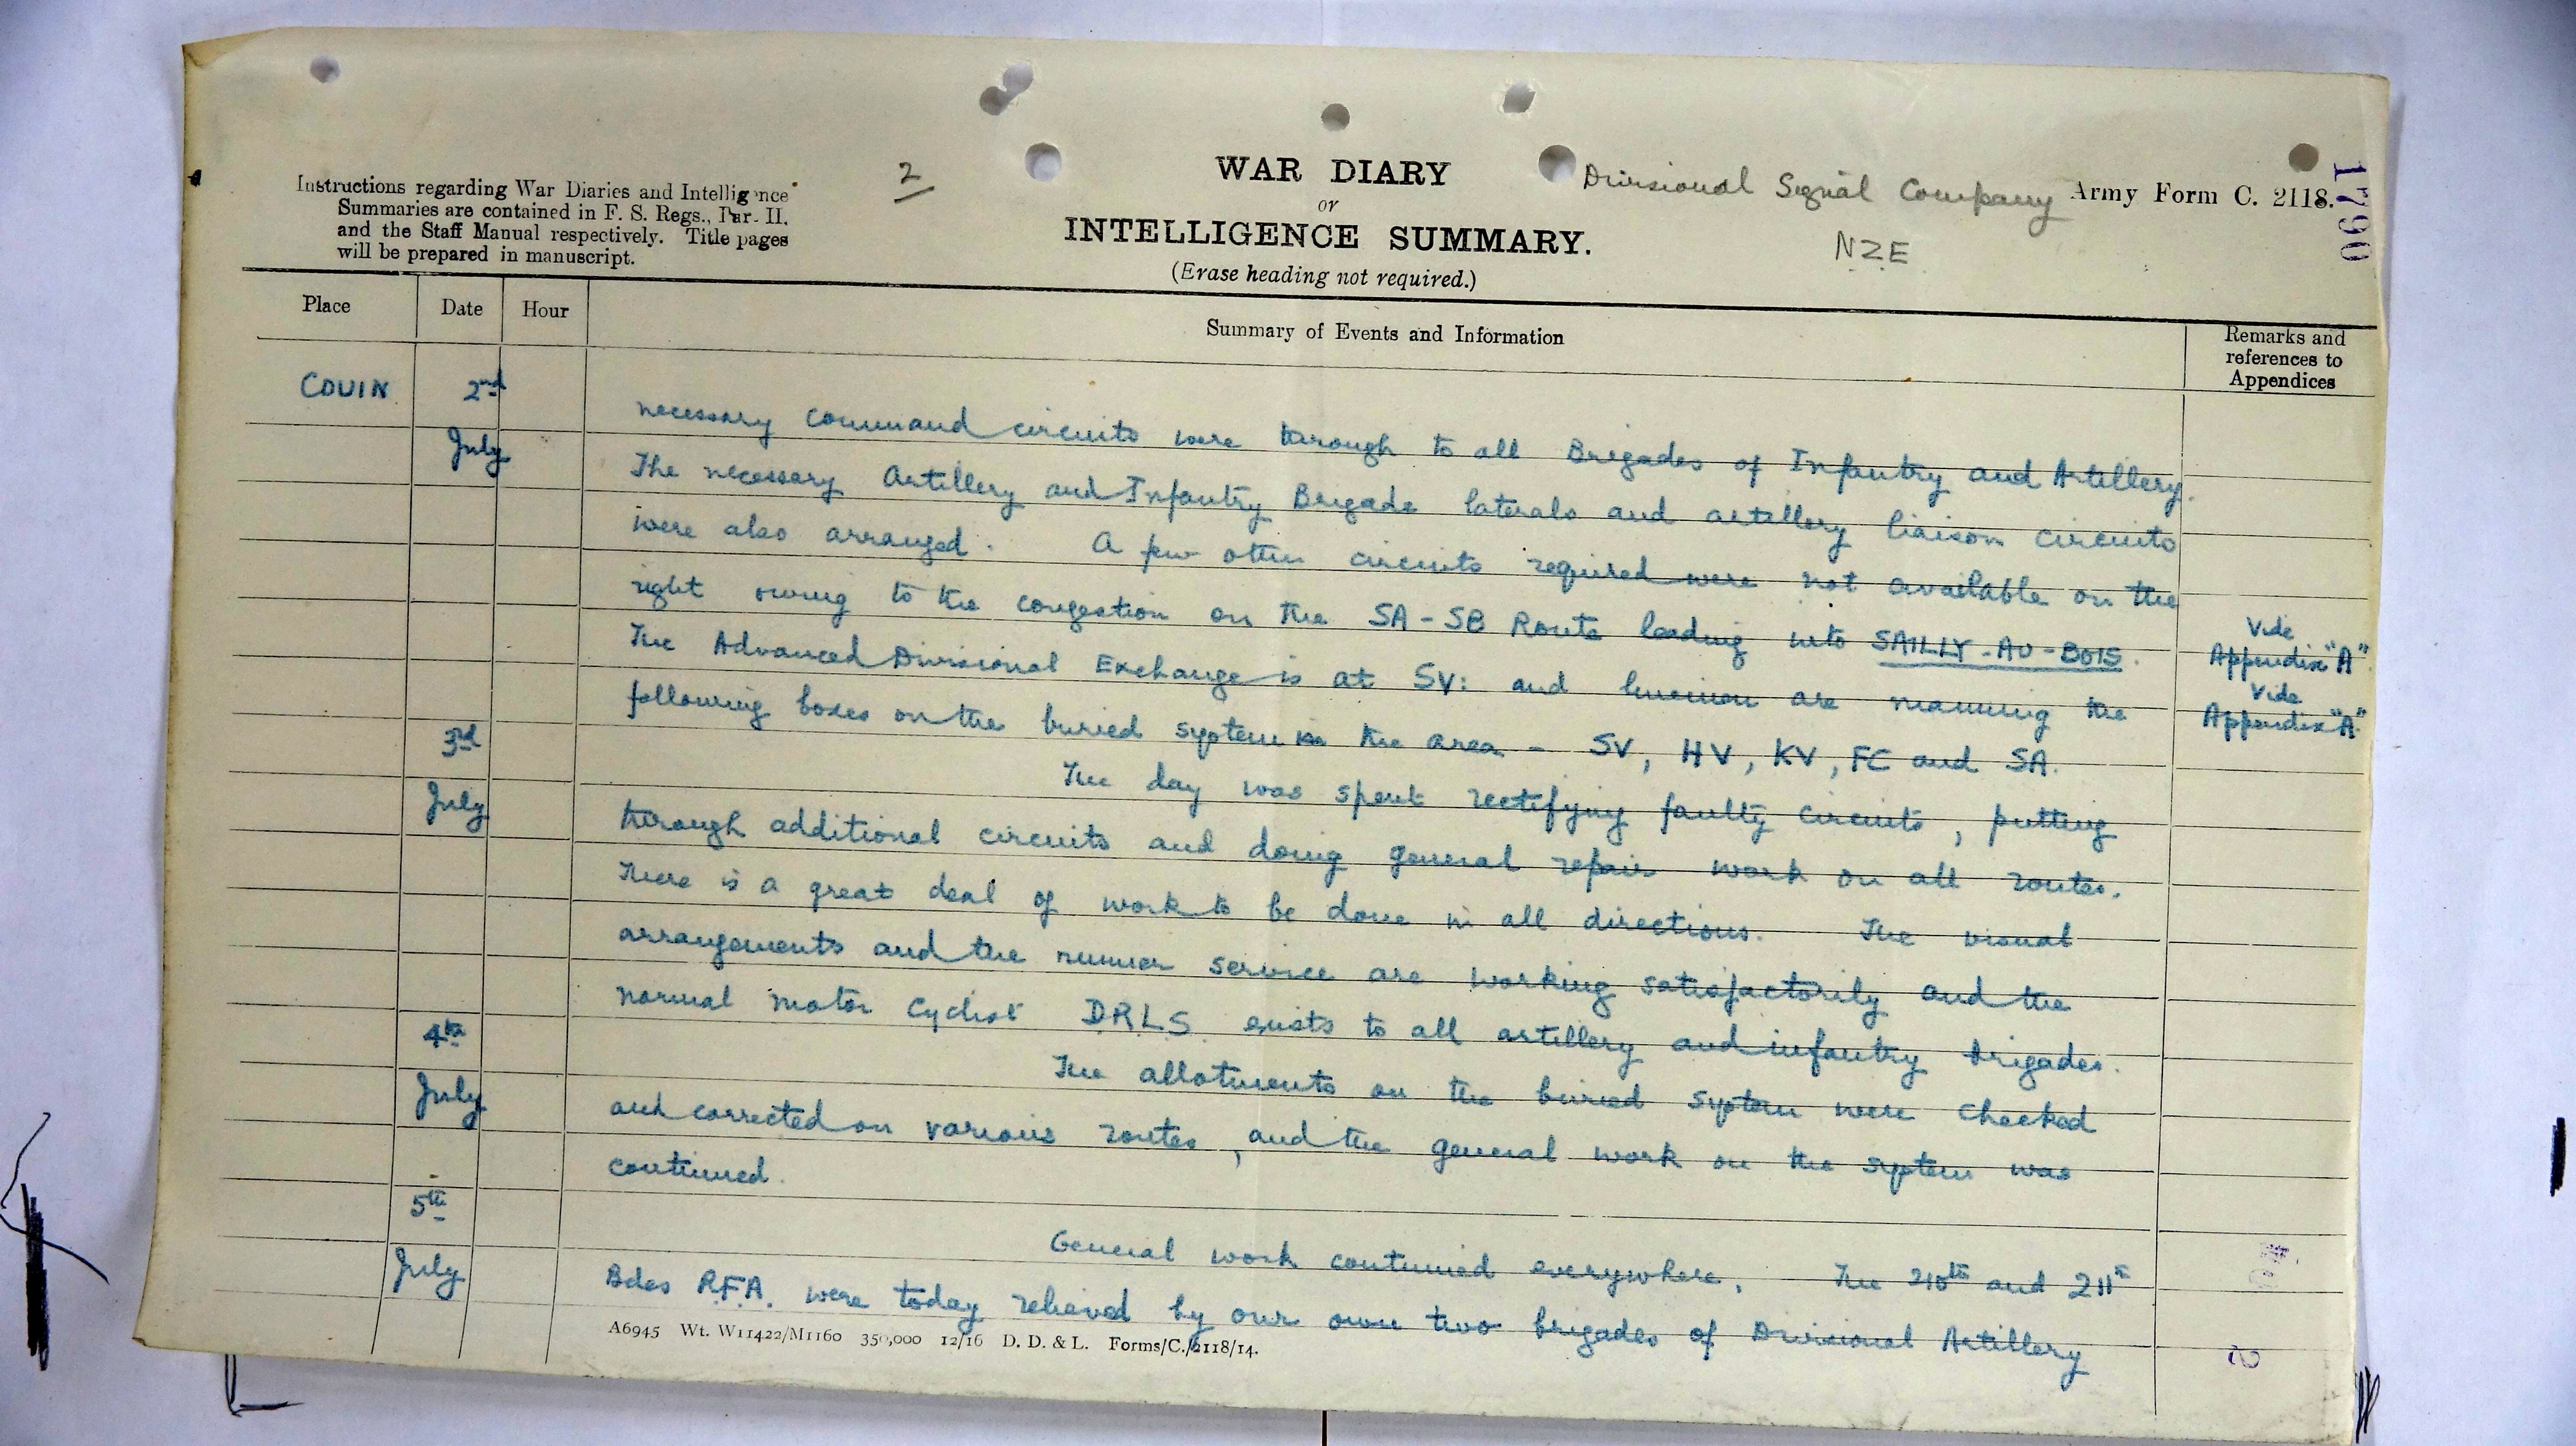 Instructions regarding War Diaries and Intelligence
Summaries are contained in F. S. Regs., Par. II.
and the Staff Manual respectively. Title pages
will be prepared in manuscript.
2
WAR DIARY
or
INTELLIGENCE SUMMARY.
(Erase heading not required.)
Divisional Signal Company
NZE
Army Form C. 2118.
1790
Place Date Hour Summary of Events and Information Remarks and references to Appendices
COUIN 2nd July
necessary command circuits were through to all Brigades of Infantry and Artillery.
The necessary Artillery and Infantry Brigade laterals and artillery liaison circuits
were also arranged. A few other circuits required were not available on the
right owing to the congestion on the SA-SB Route leading into SAILLY-AU-BOIS. Vide Appendix "A"
The Advanced Divisional Exchange is at SV: and linemen are manning the Vide Appendix "A"
following boxes on the buried system in the area - SV, HV, KV, FC and SA.
3rd July
The day was spent rectifying faulty circuits, putting
through additional circuits and doing general repair work on all routes.
There is a great deal of work to be done in all directions. The visual
arrangements and the runner service are working satisfactorily and the
normal motor cyclist D.R.L.S. exists to all artillery and infantry brigades.
4th July
The allotments on the buried system were checked
and corrected on various routes, and the general work on the system was
continued.
5th July
General work continued everywhere. The 210th and 211th
Bdes R.F.A. were today relieved by our own two brigades of Divisional Artillery
A6945 Wt. W11422/M1160 350,000 12/16 D. D. & L. Forms/C./2118/14.
2